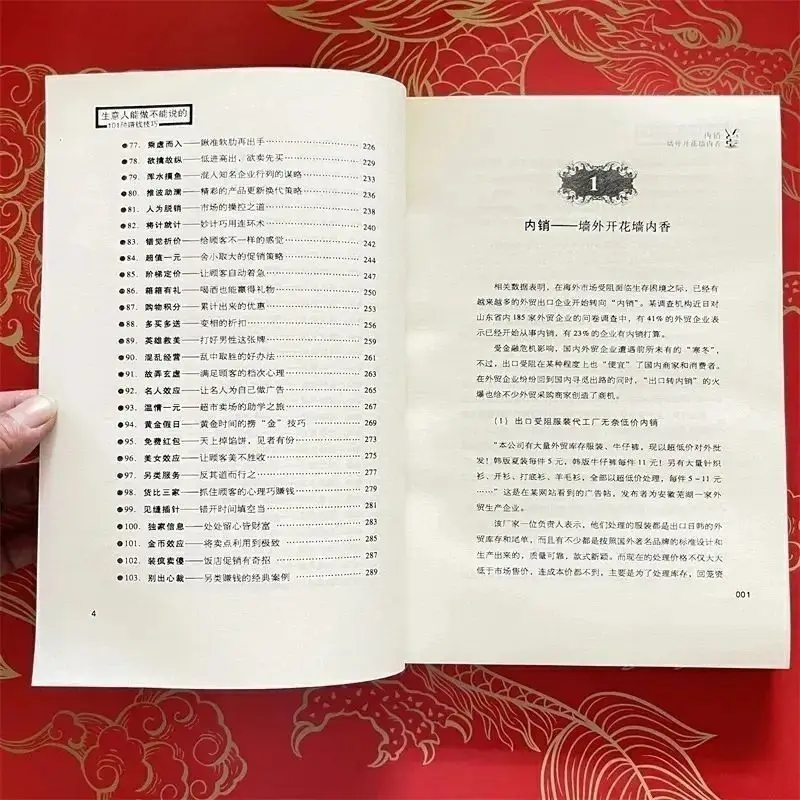 生意人能做不能说的
101种赚钱技巧
●77. 乘虚而入——瞅准软肋再出手……226
●78. 欲擒故纵——低进高出,欲卖先买……229
●79. 浑水摸鱼——混入知名企业行列的谋略……233
●80. 推波助澜——精彩的产品更新换代策略……236
●81. 人为脱销——市场的操控之道……238
●82. 将计就计——妙计巧用连环术……240
●83. 错觉折价——给顾客不一样的感觉……242
●84. 超值一元——舍小取大的促销策略……244
●85. 阶梯定价——让顾客自动着急……246
●86. 箱箱有礼——喝酒也能赢得礼物……250
●87. 购物积分——累计出来的优惠……253
●88. 多买多送——变相的折扣……256
●89. 英雄救美——打好男性这张牌……259
●90. 混乱经营——乱中取胜的好办法……261
●91. 故弄玄虚——满足顾客的档次心理……263
●92. 名人效应——让名人为自己做广告……265
●93. 温情一元——超市卖场的助学之旅……267
●94. 黄金假日——黄金时间的捞“金”技巧……269
●95. 免费红包——天上掉馅饼,见者有份……273
●96. 美女效应——让顾客美不胜收……275
●97. 另类服务——反其道而行之……277
●98. 货比三家——抓住顾客的心理巧赚钱……279
●99. 见缝插针——错开时间填空当……281
●100. 独家信息——处处留心皆财富……283
●101. 金币效应——将卖点利用到极致……285
●102. 装疯卖傻——饭店促销有奇招……287
●103. 别出心裁——另类赚钱的经典案例……289
4
内销
墙外开花墙内香
1
内销——墙外开花墙内香
相关数据表明,在海外市场受阻面临生存困境之际,已经有
越来越多的外贸出口企业开始转向“内销”。某调查机构近日对
山东省内185家外贸企业的问卷调查中,有41%的外贸企业表
示已经开始从事内销,有23%的企业有内销打算。
受金融危机影响,国内外贸企业遭遇前所未有的“寒冬”,
不过,出口受阻在某种程度上也“便宜”了国内商家和消费者。
在外贸企业纷纷回到国内寻觅出路的同时,“出口转内销”的火
爆也给不少外贸采购商家创造了商机。
(1)出口受阻服装代工厂无奈低价内销
“本公司有大量外贸库存服装、牛仔裤,现以超低价对外批
发!韩版夏装每件5元,韩版牛仔裤每件11元!另有大量针织
衫、开衫、打底衫、羊毛衫,全部以超低价处理,每件5-11元
……”这是在某网站看到的广告帖,发布者为安徽芜湖一家外
贸生产企业。
该厂家一位负责人表示,他们处理的服装都是出口日韩的外
贸库存和尾单,而且有不少都是按照国外著名品牌的标准设计和
生产出来的,质量可靠,款式新颖。而现在的处理价格不仅大大
低于市场售价,连成本价都不到,主要是为了处理库存,回笼资
001